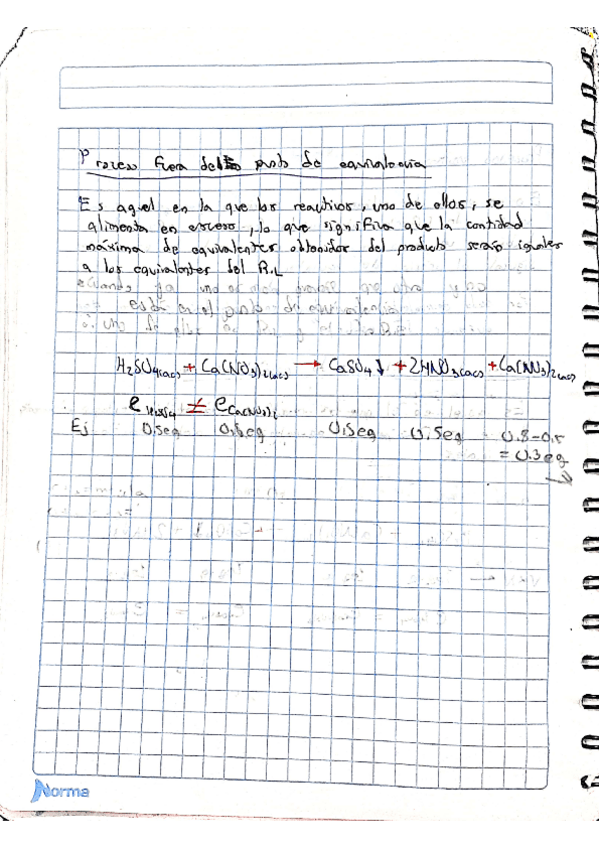 Proceso fuera del punto de equivalencia
Es aquel en la que los reactivos, uno de ellos, se
alimenta en exceso, lo que significa que la cantidad
máxima de equivalentes obtenidos del producto serán iguales
a los equivalentes del R.L
está en el punto de equivalencia
H₂SO₄(ac) + Ca(NO₃)₂(ac) → CaSO₄↓ + 2HNO₃(ac) + Ca(NO₃)₂(ac)
e H₂SO₄ ≠ e Ca(NO₃)₂
Ej 0.5eq 0.8eq 0.5eq 0.5eq 0.8-0.5
= 0.3eq
Norma